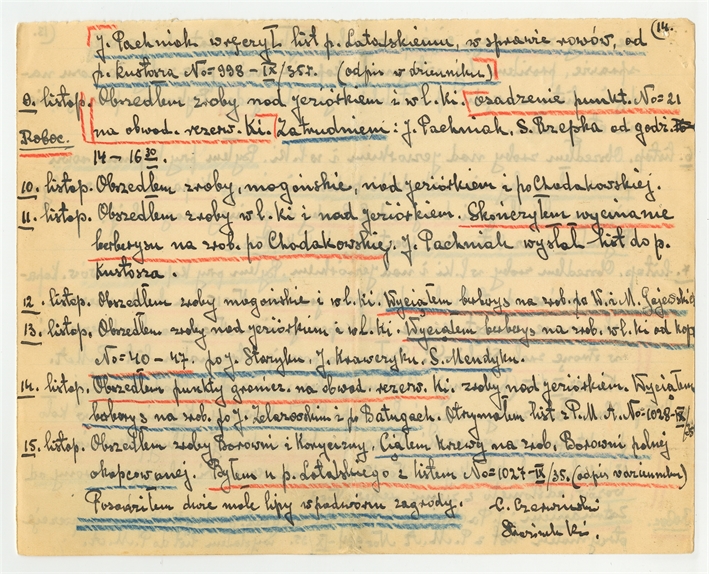 14.
J. Pachniak wręczył list p. Latalskiemu, w sprawie rowów, od
p. kustosza No=998-IX/35r. (odpis w dzienniku)
9. listop. Obszedłem zroby nad jeziorkiem i w l. ki. osadzenie punkt. No=21
Roboc. na obwod. rezerw. ki. Zatrudniem: J. Pachniak, S. Rzepka od godz.
14 - 16 30.
10. listop. Obszedłem zroby, mogońskie, nad jeziorkiem i po Chodakowskiej.
11. listop. Obszedłem zroby w l. ki i nad jeziorkiem. Skończyłem wycinanie
berberysu na zrob. po Chodakowskiej. J. Pachniak wysłał list do p.
kustosza.
12. listop. Obszedłem zroby mogońskie i w l. ki. Wyciąłem berberys na zrob. po W. i M. Gajewskich
13. listop. Obszedłem zroby nad jeziorkiem i w l. ki Wyciąłem berberys na zrob. w l. ki od kop
No=40-47. po J. Storyku, J. Krawczyku, S. Mendyku.
14. listop. Obszedłem punkty granicz. na obwod. rezerw. ki. zroby nad jeziorkiem. Wyciąłem
berberys na zrob. po J. Żelazowskim i po Batugach. Otrzymałem list z P. M. A. No=1028-IX/35
15. listop. Obszedłem zroby Borowni i Korycizny. Ciąłem krzewy na zrob. Borowni polnej
okopcowanej. Byłem u p. Latalskiego z listem No=1027-IX/35. (odpis w dzienniku)
Posadziłem dwie małe lipy w podwórzu zagrody.
C. Czerwiński